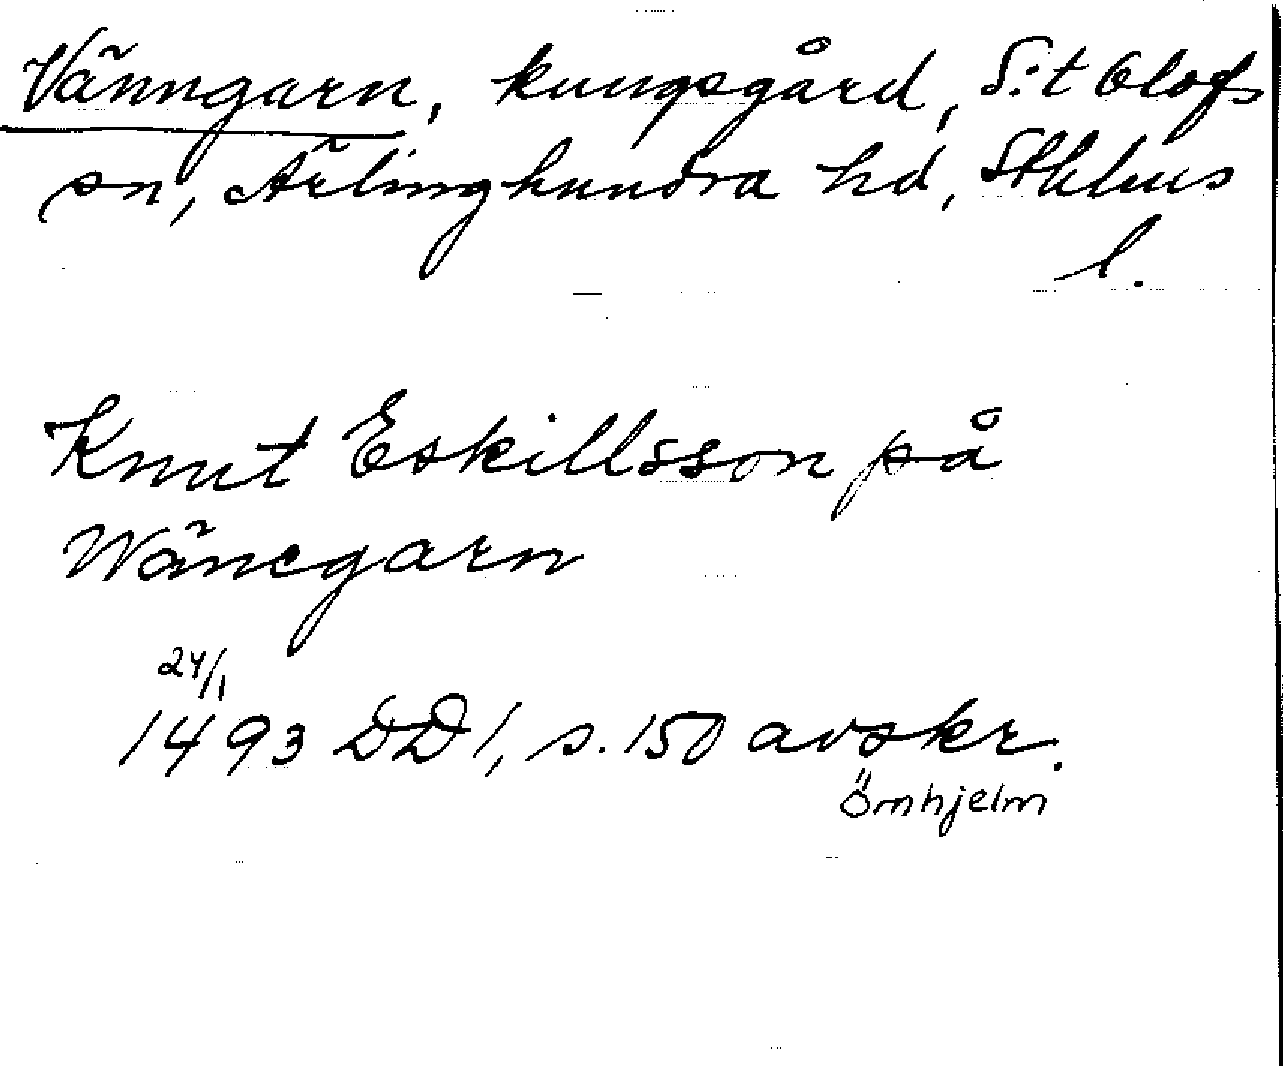 Vänngarn, kungsgård, S:t Olofs
sn, Ärlinghundra hd, Sthlms
l.
Knut Eskillsson på
Wänegarn
24/1
1493 DD 1, s. 150 avskr.
Örnhjelm